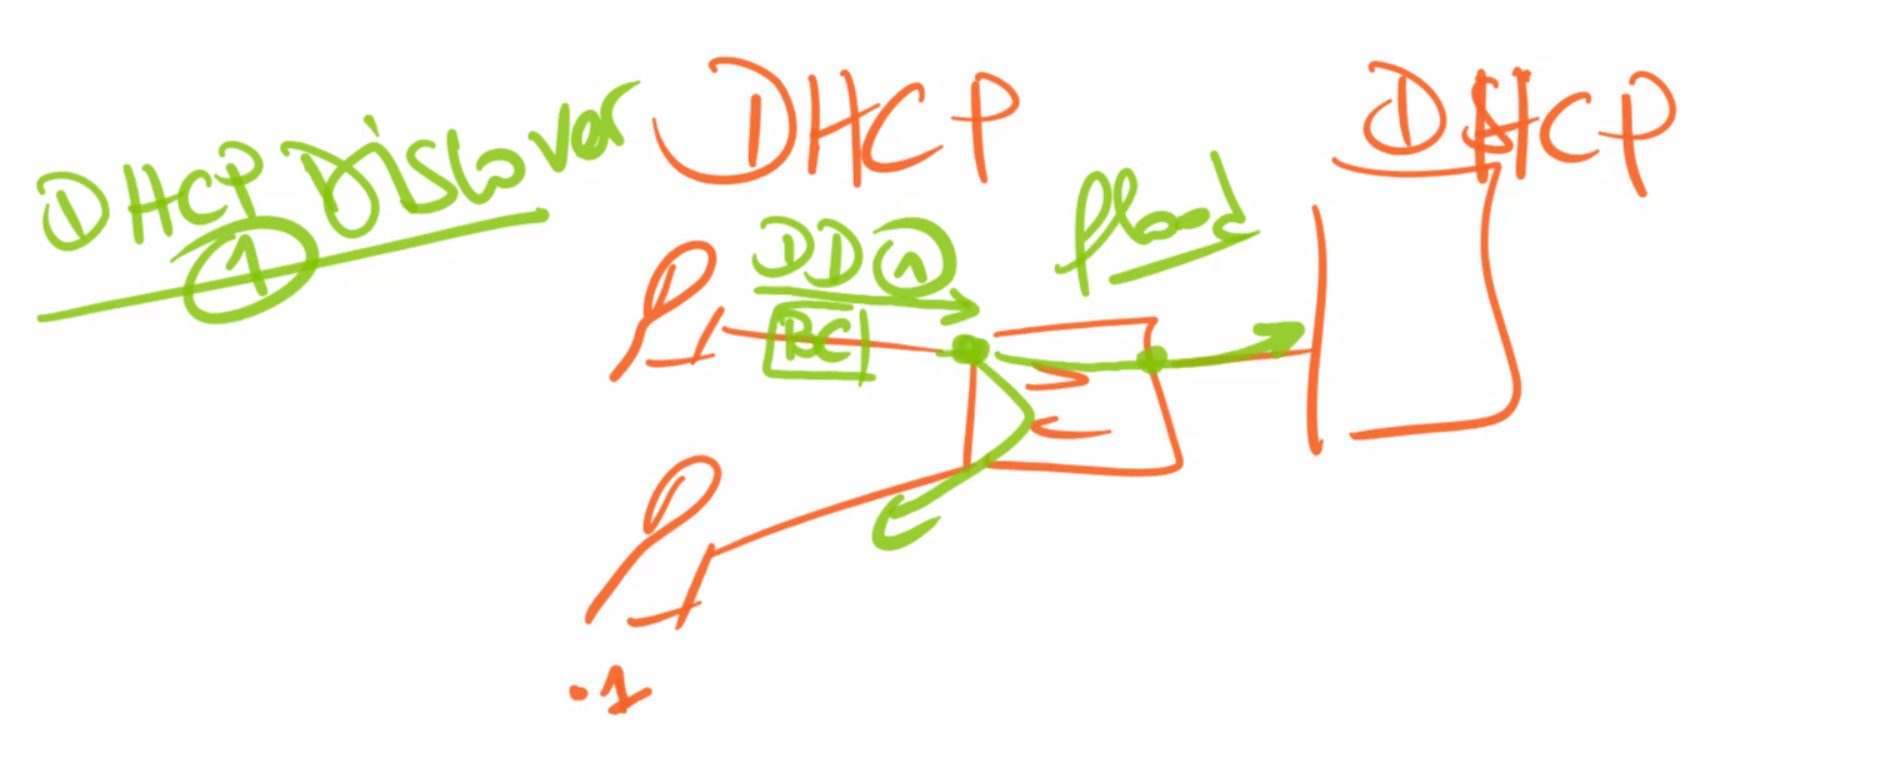 DHCP Discover
1
DHCP
DHCP
DD 1
BC
flood
.1